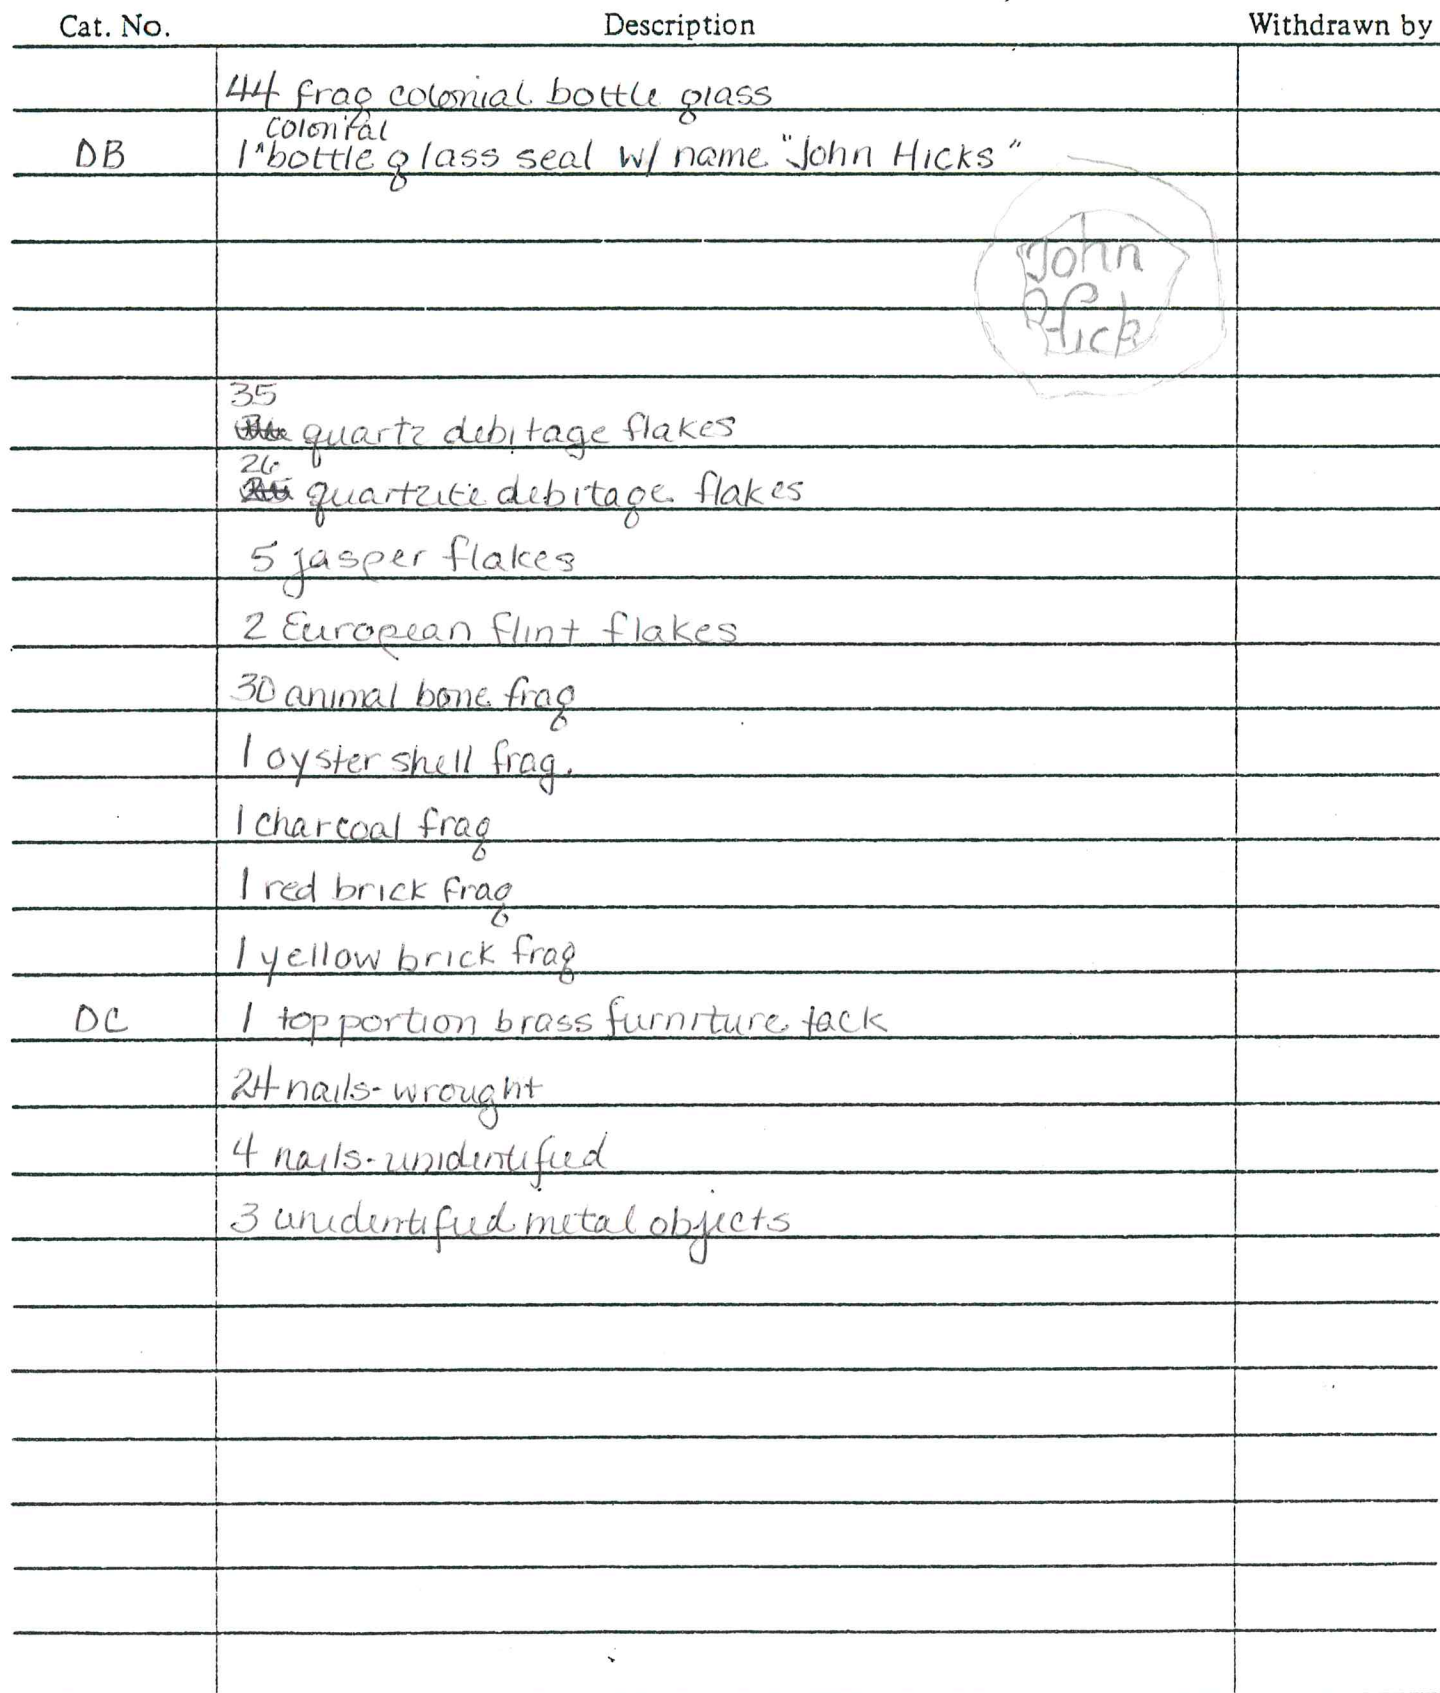 Cat. No. Description Withdrawn by
44 frag colonial bottle glass
colonial
DB 1 ^ bottle glass seal w/ name "John Hicks"
John
Hick
35
quartz debitage flakes
26
quartzite debitage flakes
5 jasper flakes
2 European flint flakes
30 animal bone frag
1 oyster shell frag.
1 charcoal frag
1 red brick frag
1 yellow brick frag
DC 1 top portion brass furniture tack
24 nails-wrought
4 nails-unidentified
3 unidentified metal objects